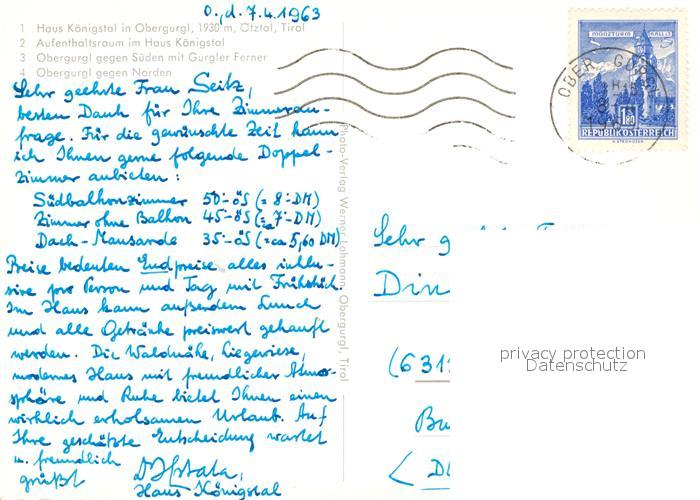 O., d. 7.4.1963
1 Haus Königstal in Obergurgl, 1930 m, Ötztal, Tirol
2 Aufenthaltsraum im Haus Königstal
3 Obergurgl gegen Süden mit Gurgler Ferner
4 Obergurgl gegen Norden
Sehr geehrte Frau Seitz,
besten Dank für Ihre Zimmeran-
frage. Für die gewünschte Zeit kann
ich Ihnen gerne folgende Doppel-
zimmer anbieten:
Südbalkonzimmer 50.-öS (= 8.-DM)
Zimmer ohne Balkon 45.-öS (= ca 7.-DM)
Dach-Mansarde 35.-öS (= ca 5,60 DM)
Preise bedeuten Endpreise alles inklu-
sive pro Person und Tag mit Frühstück.
Im Haus kann außerdem Lunch
und alle Getränke preiswert gekauft
werden. Die Waldnähe, Liegewiese,
modernes Haus mit freundlicher Atmo-
sphäre und Ruhe bietet Ihnen einen
wirklich erholsamen Urlaub. Auf
Ihre geschätzte Entscheidung wartet
u. freundlich
grüßt
Haus Königstal
Photo-Verlag Werner Lohmann, Obergurgl, Tirol
MÜNZTURM HALL I.T.
OBER GURGL
1.80
REPUBLIK ÖSTERREICH
Sehr g
Din
(631
Bu
privacy protection
Datenschutz